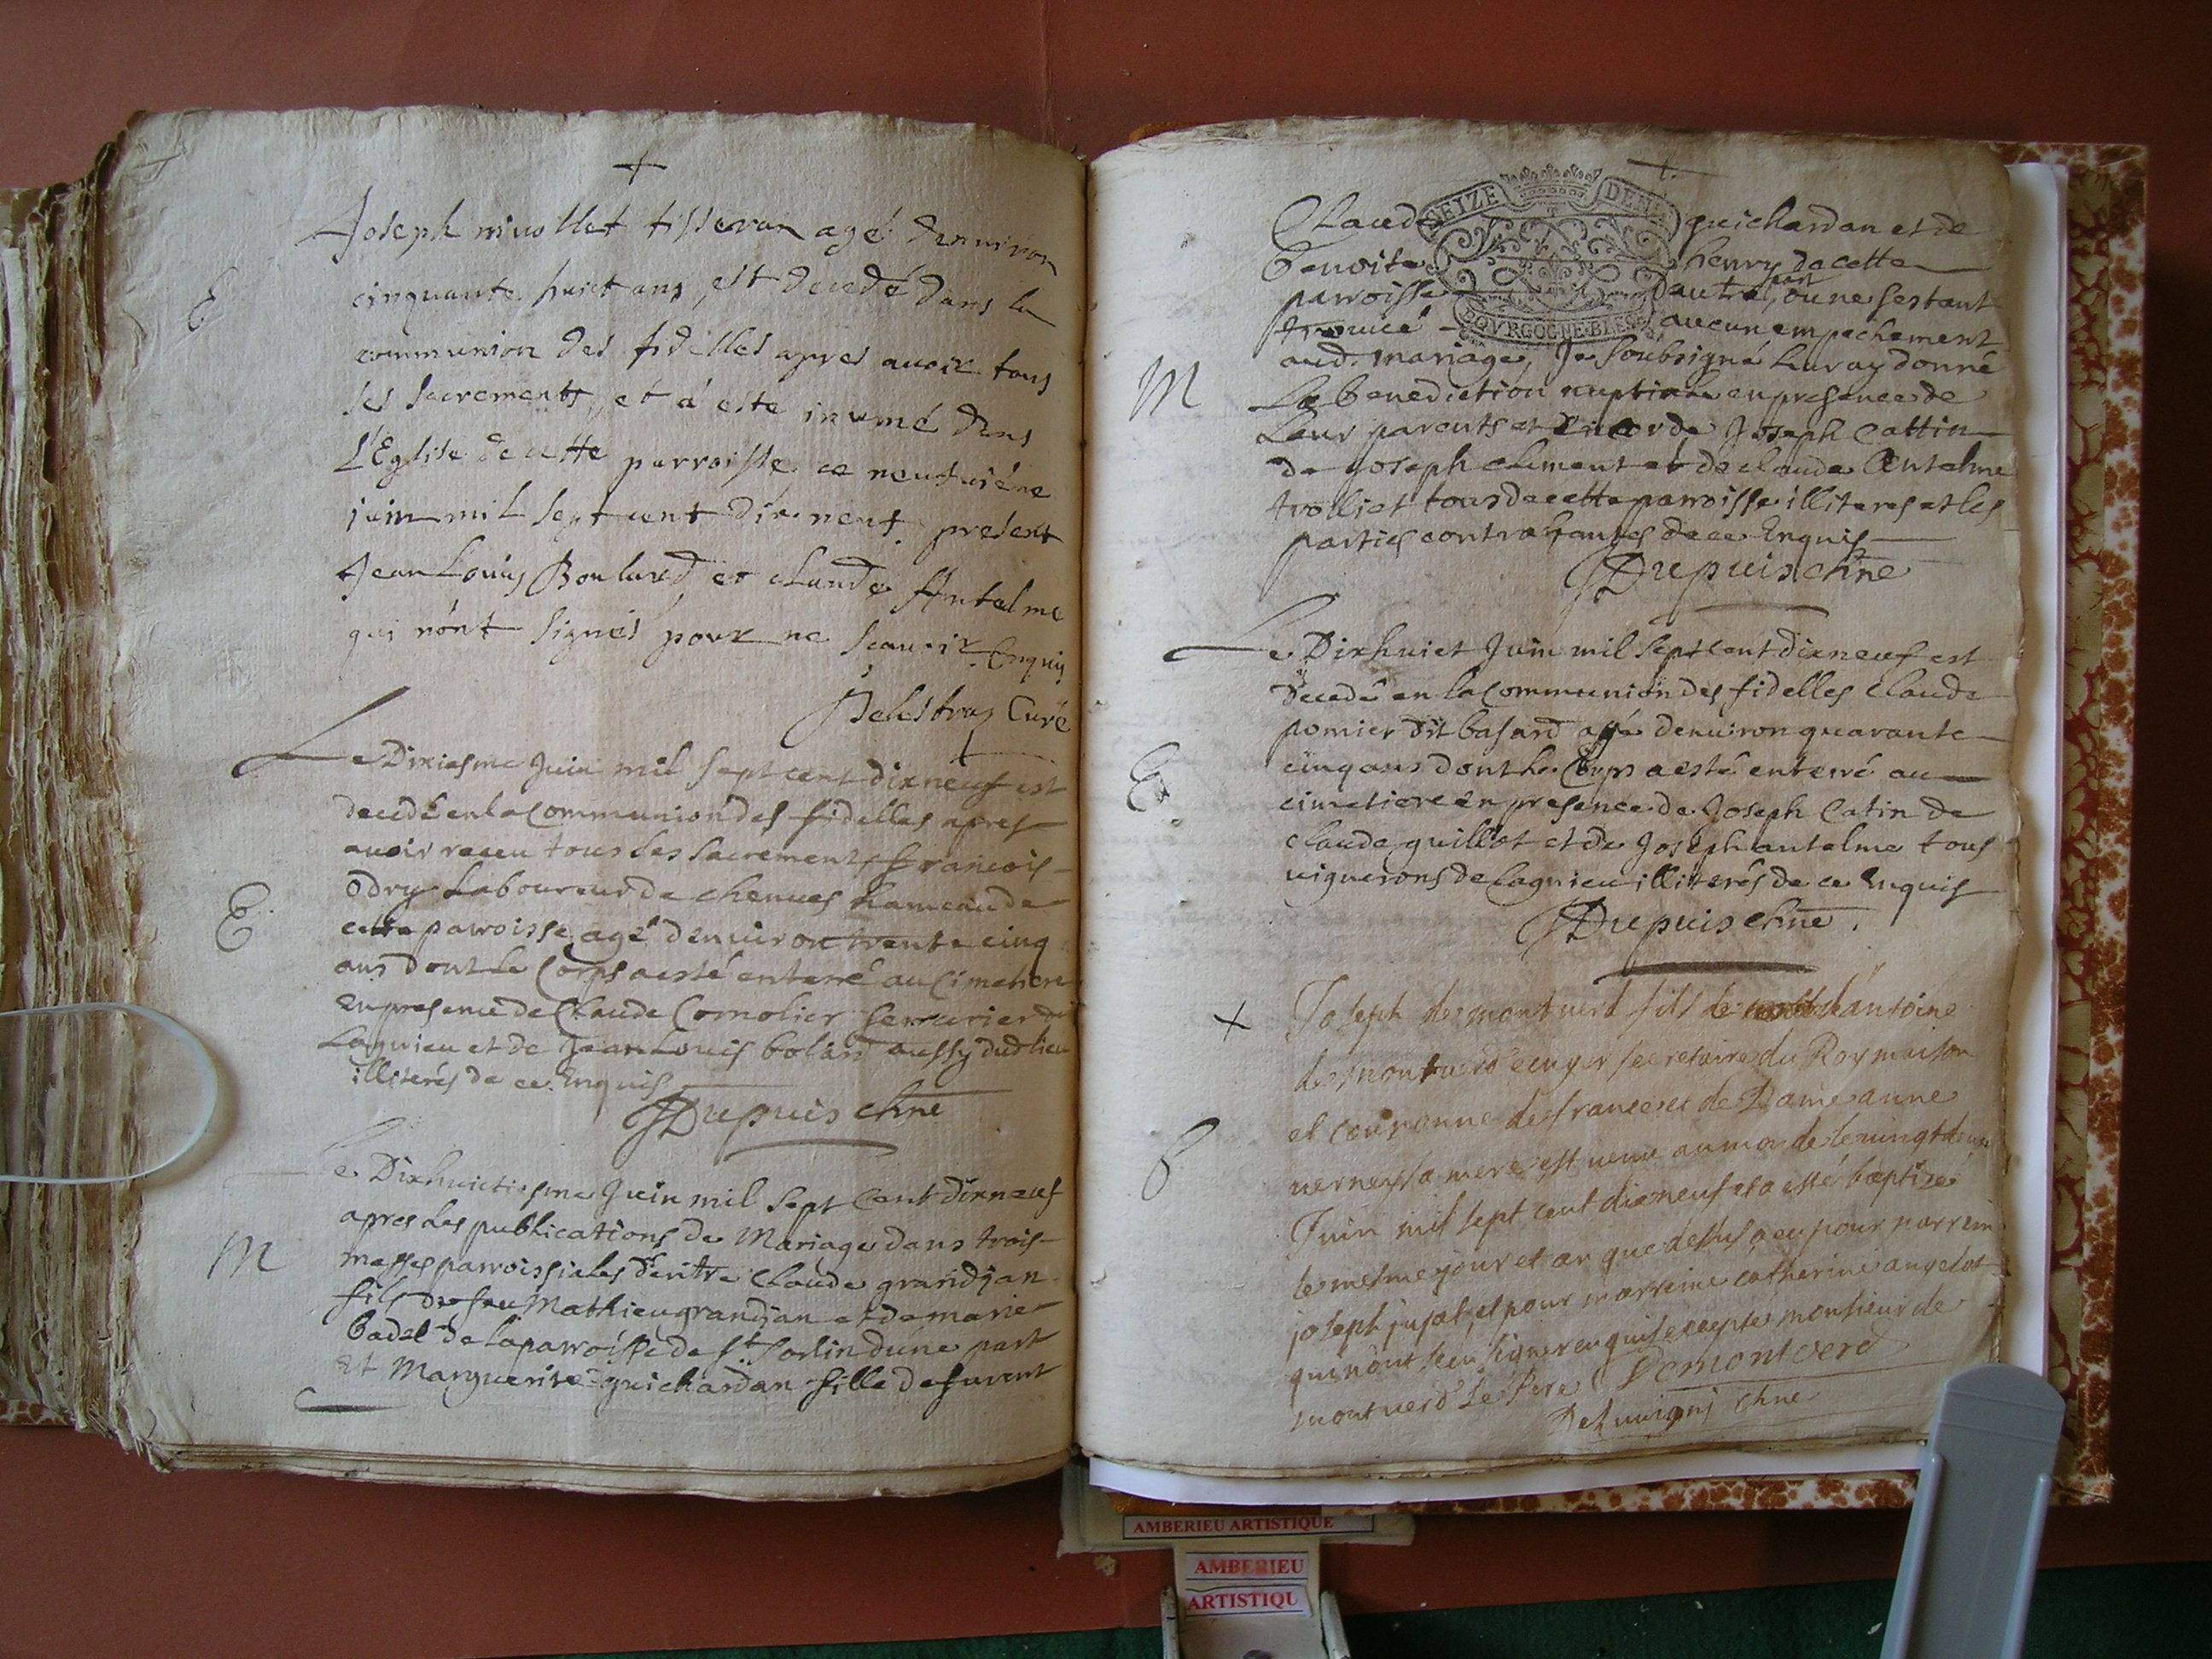 +
Joseph niuollet tisseran agé denuiron
E
cinquante huict ans, est decedé dans la
communion des fidelles apres auoir tous
ses sacrements, et a este inumé dans
L'Eglise de cette parroisse, ce neufuiéme
juin mil sept cent dix neuf. present
Jean Louis Boulard et claude Antelme
qui n'ont signés pour ne sçauoir Enquis
Delestraz Curé
Le Dixiesme Juin mil sept cent dixneuf est
decedé en la Communion des fidelles apres
auoir receu tous les sacrements francois
odry Laboureur de chenues hameau de
E
cette parroisse agé denuiron trente cinq
ans dont le Corps a esté enterré au Cimetiere
En presence de Claude Comolier serrurier de
Lagnieu et de Jean Louis bolard aussy dud lieu
illiterés de ce Enquis
Dupuis chne
Le Dixhuictiesme Juin mil sept Cent dixneuf
apres les publications de Mariage dans trois
M
messes parroissiales d'entre Claude grandjan
fils de feu Mathieu grandjan et de marie
badel de la parroisse de st sorlin dune part
Et Marguerite guichardan fille de furent
+
SEIZE DEN
BOVRGOGNE BRESS
Claude guichardan et de
Benoite henry de cette
parroisse dautre part, ou ne sestant
trouué aucun empechement
aud. mariage, Je soubsigné leur ay donné
M
La benediction nuptiale en presence de
Leur parents et Encor de Joseph Cattin
de joseph climent et de claude Antelme
trolliet tous de cette parroisse illiteres et les
parties contrahantes de ce Enquis
Dupuis chne
Le Dixhuict Juin mil sept cent dixneuf est
Decedé en la Communion des fidelles Claude
pomier dit basard agé denuiron quarante
E
cinq ans dont le Corps a esté enterré au
cimetiere en presence de Joseph Catin de
claude guillot et de Joseph antelme tous
uignerons de Lagnieu illiterés de ce Enquis
Dupuis chne.
+ Joseph de montuerd fils de antoine
de montuerd ecuyer secretaire du Roy maison
et couronne de france et de Dame anne
uerney sa mere est uenu au monde le uingt deux
B
Juin mil sept cent dixneuf et a esté baptizé
le mesme jour et an que dessus a eu pour parrein
joseph jujat, et pour marreine catherine angelot
qui n'ont sceu signer enquis excepté monsieur de
montuerd le Pere Demontverd
chne
AMBERIEU ARTISTIQUE
AMBERIEU
ARTISTIQU